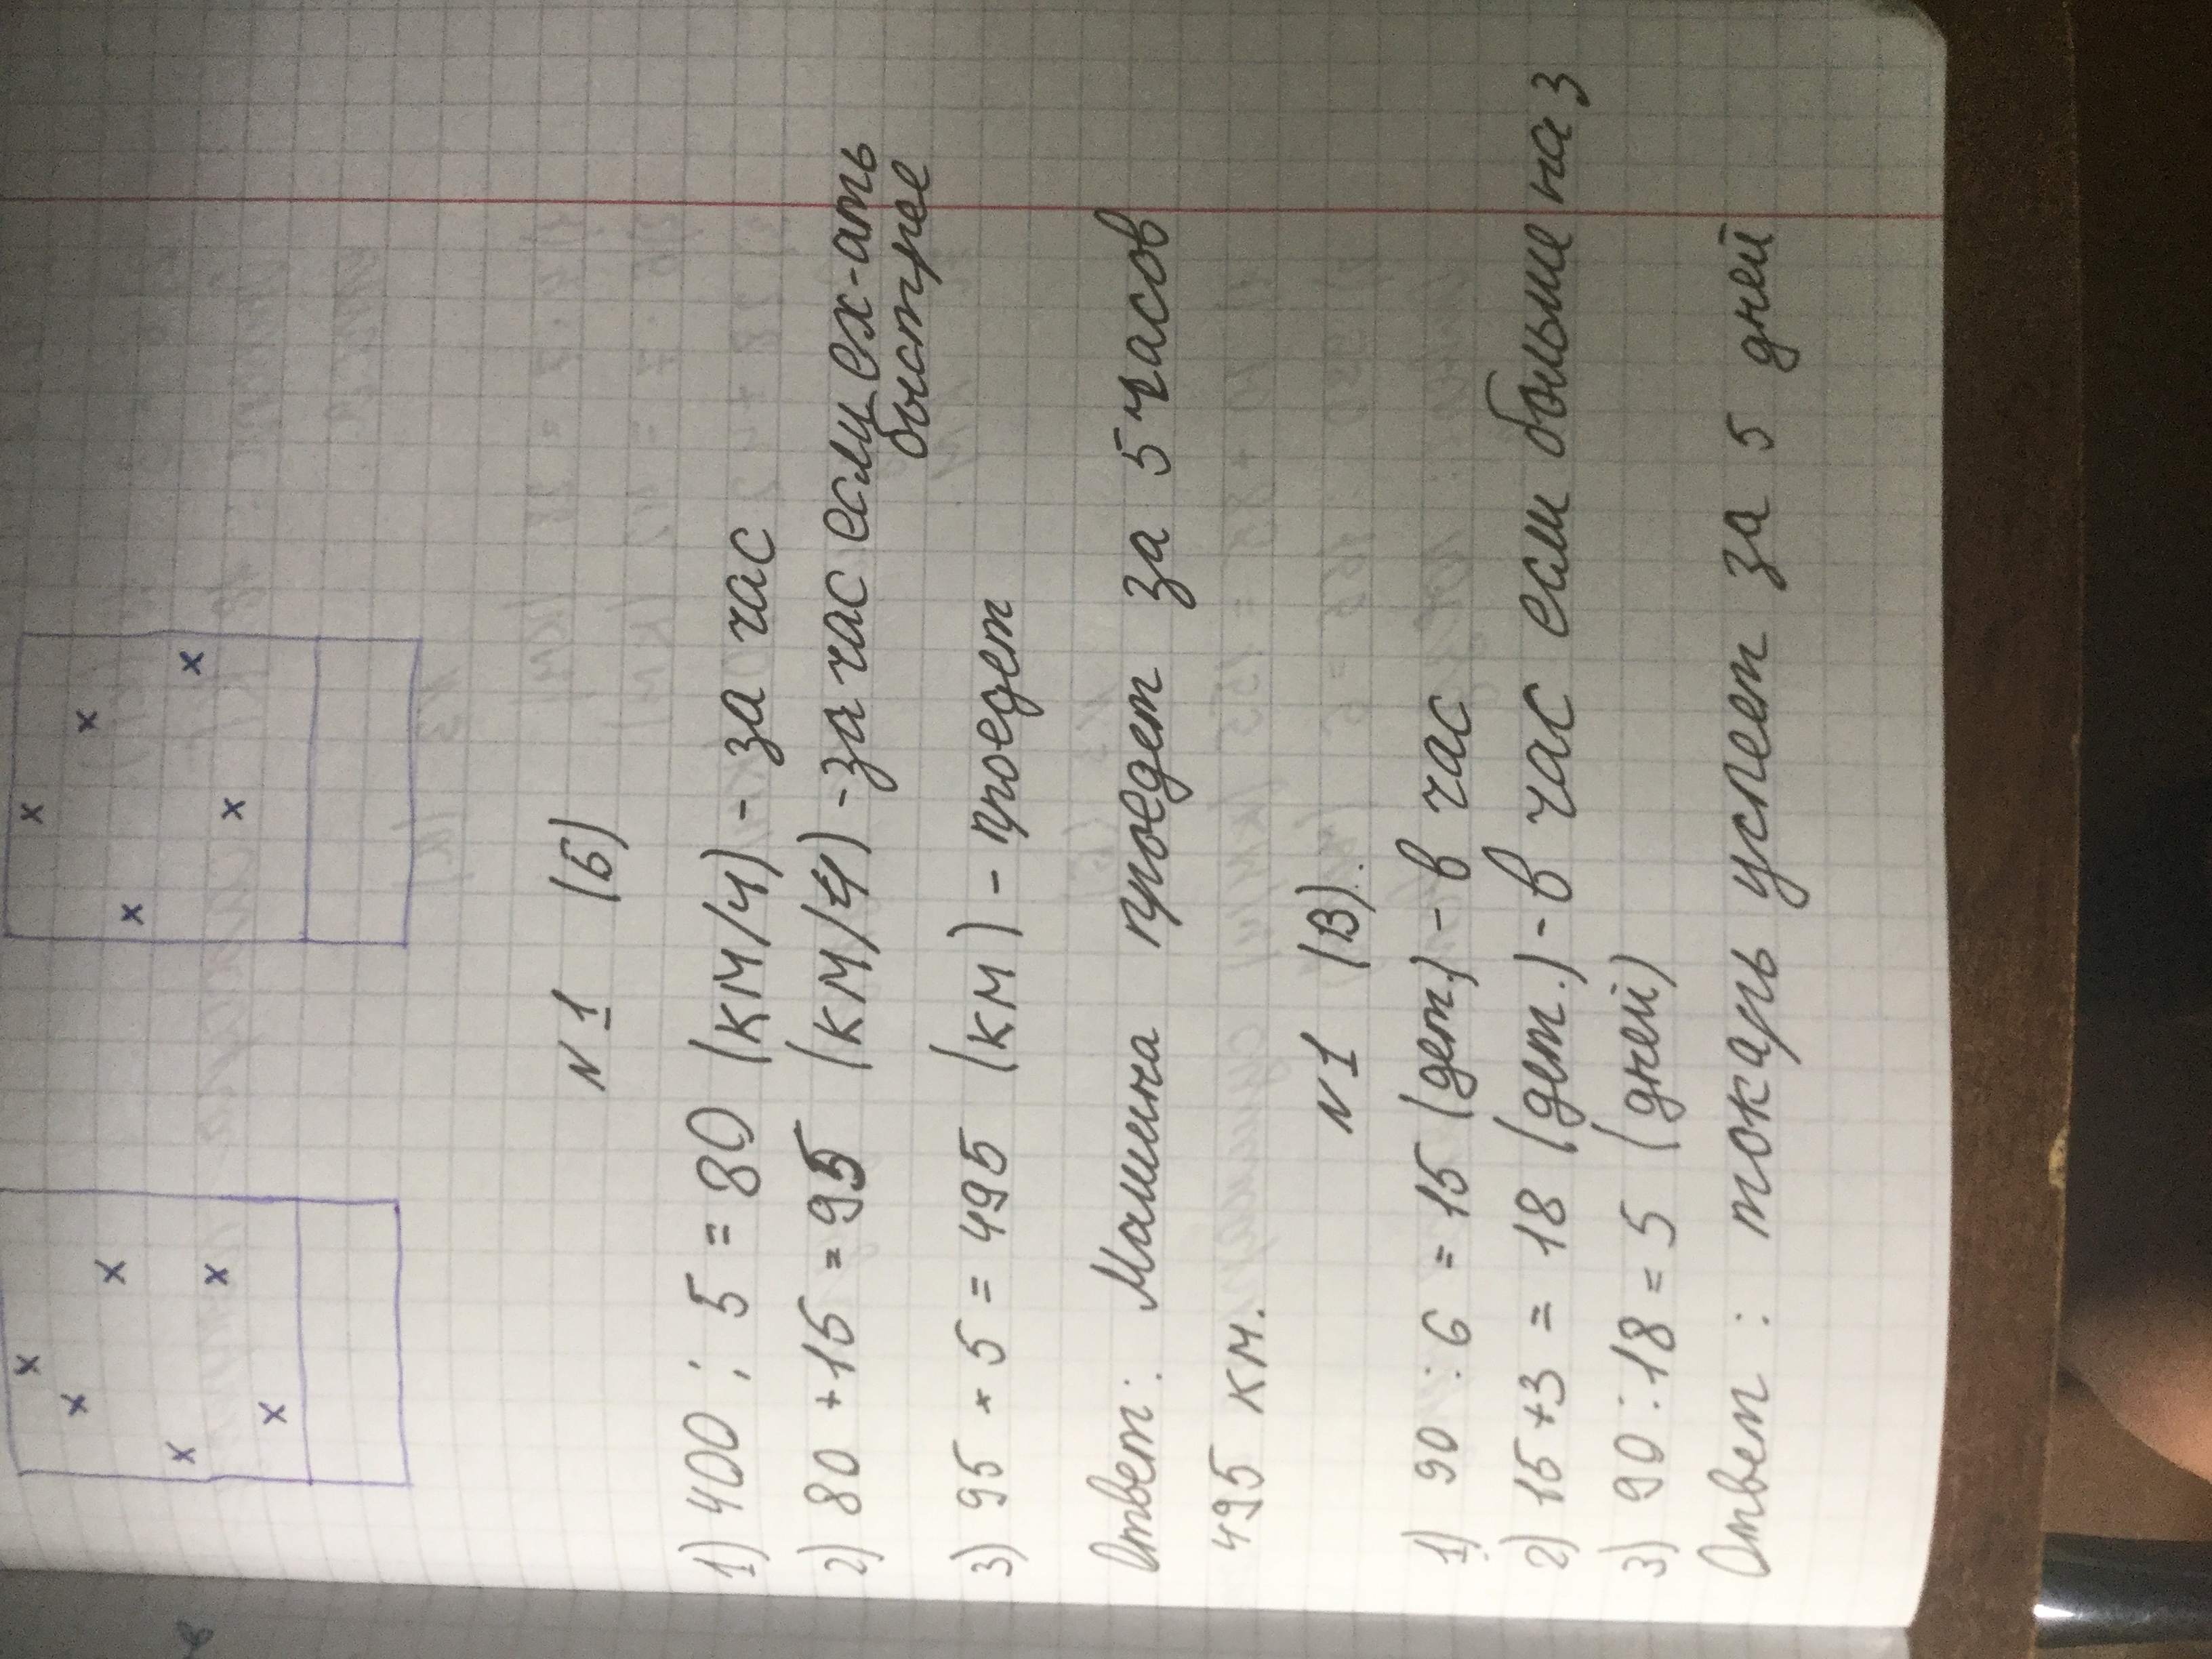 N 1 (Б)
1) 400 : 5 = 80 (км/ч) - за час
2) 80 + 15 = 95 (км/ч) - за час если ех-ать
быстрее
3) 95 * 5 = 495 (км) - проедет
Ответ: Машина проедет за 5 часов
495 км.
N 1 (В).
1) 90 : 6 = 15 (дет.) - в час
2) 15 + 3 = 18 (дет.) - в час если больше на 3
3) 90 : 18 = 5 (дней)
Ответ : токарь успеет за 5 дней